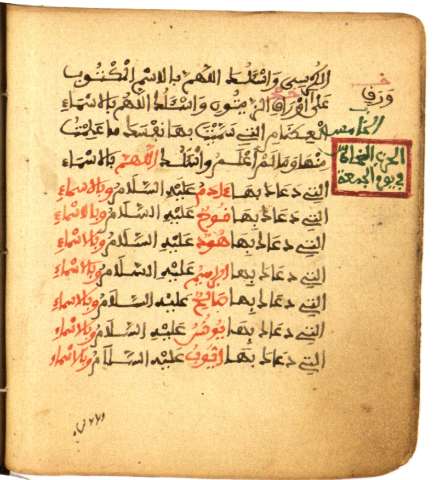 الكرسي واسئلك اللهم بالاسم المكتوب
على اوراق الزيتون واسئلك اللهم بالاسماء
العظام التي سميت بها نفسك ما علمت
منها وما لم اعلم واسئلك اللهم بالاسماء
التي دعاك بها ءادم عليه السلام وبالاسماء
التي دعاك بها نوح عليه السلام وبالاسماء
التي دعاك بها هود عليه السلام وبالاسماء
التي دعاك بها ابراهيم عليه السلام وبالاسماء
التي دعاك بها صالح عليه السلام وبالاسماء
التي دعاك بها يونس عليه السلام وبالاسماء
التي دعاك بها ايوب عليه السلام وبالاسماء
الخامس
الحزب
في يوم الجمعة